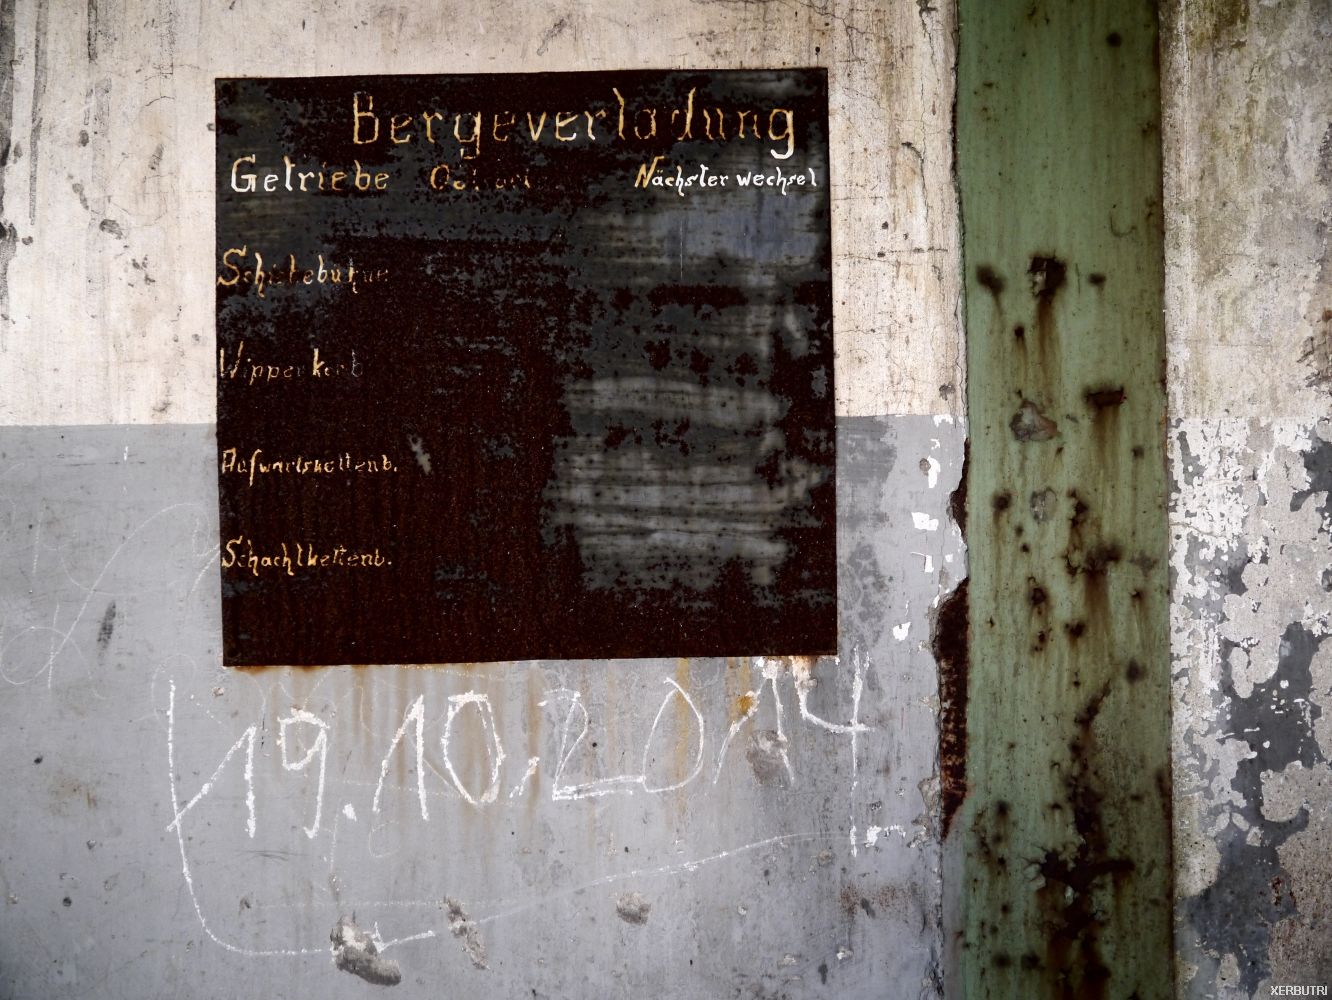 Bergeverladung
Getriebe Nächster wechsel
Schiebebühne
Wipperkorb
Aufwärtskettenb.
Schachtkettenb.
19.10.2014
XERBUTRI